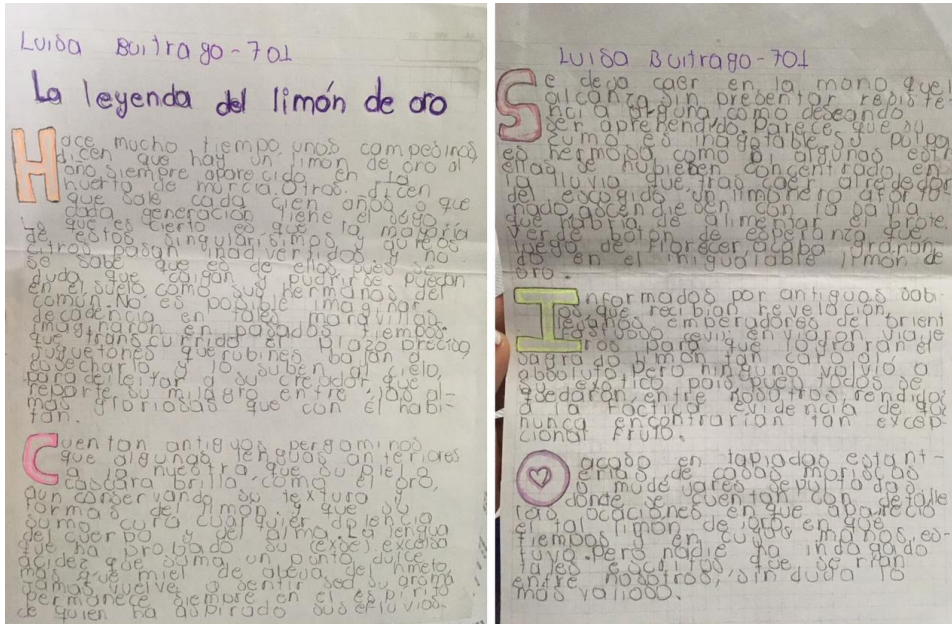 Luisa Buitrago-701
La leyenda del limón de oro
Hace mucho tiempo unos campesinos
dicen que hay un limón de oro al
año siempre aparecido en la
huerta de murcia. Otros dicen
que sale cada cien años o que
cada generación tiene el sogo
lo que es cierto es que la mayoría
de estos singularisimos y aureos
citros pasan inadvertidos y no
se sabe que es de ellos pues se
duda que caigan y pudrirse puedan
en el suelo como sus hermanos del
común. No es posible imaginar
decadencia en tales maravillas.
Imaginaron en pasados tiempos
que transcurrido el plazo preciso,
juguetones querubines bajan a
cosecharlo y lo suben al cielo,
para deleitar a su creador que
reparte su milagro entre las al-
mas gloriosas que con él habi-
tan.
Cuentan antiguos pergaminos
que algunas lenguas anteriores
a la nuestra que su piel o
cascara brilla como el oro,
aun conservando su textura y
formas del limón y que su
sumo cura cualquier dolencia
del cuerpo y del alma. La lengua
que ha probado su excelsa
acidez que suma un punto dulce
mas que miel de abeja de himeto
jamas vuelve a sentir sed su aroma
permanece siempre en el espiritu
de quien ha aspirado sus efluvios.
Luisa Buitrago-701
Se deja caer en la mano que
alcanza sin presentar resiste
ncia alguna como deseando
ser aprehendido. Parece que su
zumo es inagotable su pulpa
es hermosa como si algunas estr
ellas se hubiesen concentrado en
la lluvia que tras caer alrededor
del escogido un limonero afortu
nado asciende con la savia
que habra de alimentar el potente
verde botón de esperanza que
luego de florecer acaba granan
do en el inigualable limón de
oro.
Informados por antiguos sabi
os que recibian revelación,
llegamos emberadores del orient
e lejano seguian en largo viaje
otros para que lograran el
absoluto pero ninguno volvio a
su exotico pais pues todos se
quedaron entre nosotros, rendidos
a la factica evidencia de que
nunca encontrarian tan excep
cional fruto.
O acaso en tapiadas estant-
erias de casas moriscas
o mudejares sepultadas
donde se cuentan con detalle
las ocaciones en que aparecio
el tal limón de oro, en que
tiempos y en cuyas manos, es-
tuvo. Pero nadie ha indagado
tales escritos que serian
entre nosotros, sin duda lo
mas valioso.